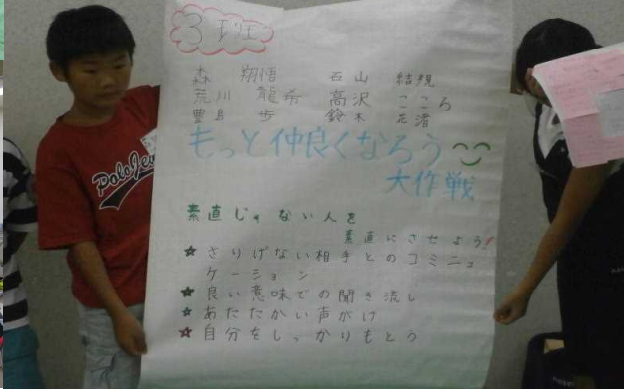 3班
森 翔悟 西山 結規
荒川 龍希 高沢 こころ
豊島 歩 鈴木 花渚
もっと仲良くなろう
大作戦
素直じゃない人を
素直にさせよう!
★さりげない相手とのコミニュ
ケーション
★良い意味での聞き流し
★あたたかい声がけ
★自分をしっかりもとう
Polo Je